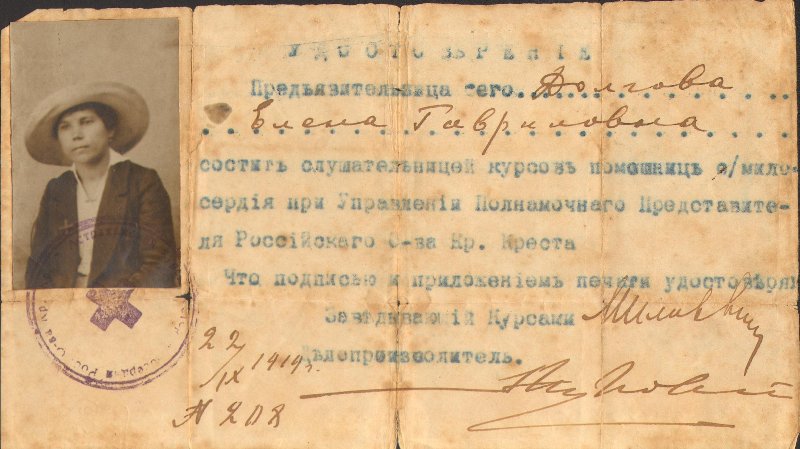 УДОСТОВѢРЕНІЕ
Предъязительница сего Долгова
Елена Гавриловна
соститъ слушательницей курсовъ помощницъ с/мило-
сердія при Управленіи Полнамочнаго Представите-
ля Россійскаго О-ва Кр. Креста
Что подписью и приложеніемъ печати удостовѣряю
Завѣдивающій Курсами
Дѣлопроизводитель.
22/IX 1919г.
№ 208